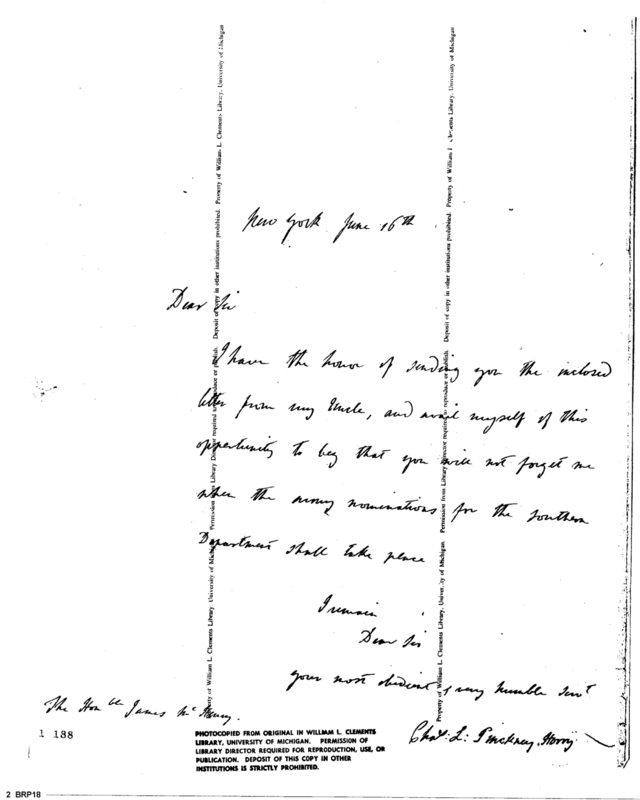 New York June 16th
Dear Sir
I have the honor of sending you the inclosed
letter from my Uncle, and avail myself of this
opportunity to beg that you will not forget me
when the army nominations for the Southern
Department shall take place
I remain
Dear Sir
your most obedient & very humble Servt
The Honble James McHenry.
Chas: L: Pinckney Horry
1 188
PHOTOCOPIED FROM ORIGINAL IN WILLIAM L. CLEMENTS
LIBRARY, UNIVERSITY OF MICHIGAN. PERMISSION OF
LIBRARY DIRECTOR REQUIRED FOR REPRODUCTION, USE, OR
PUBLICATION. DEPOSIT OF THIS COPY IN OTHER
INSTITUTIONS IS STRICTLY PROHIBITED.
Property of William L. Clements Library, University of Michigan. Permission from Library Director required to reproduce or publish. Deposit of copy in other institutions prohibited. Property of William L. Clements Library, University of Michigan
Property of William L. Clements Library, University of Michigan. Permission from Library Director required to reproduce or publish. Deposit of copy in other institutions prohibited. Property of William L. Clements Library, University of Michigan
2 BRP18